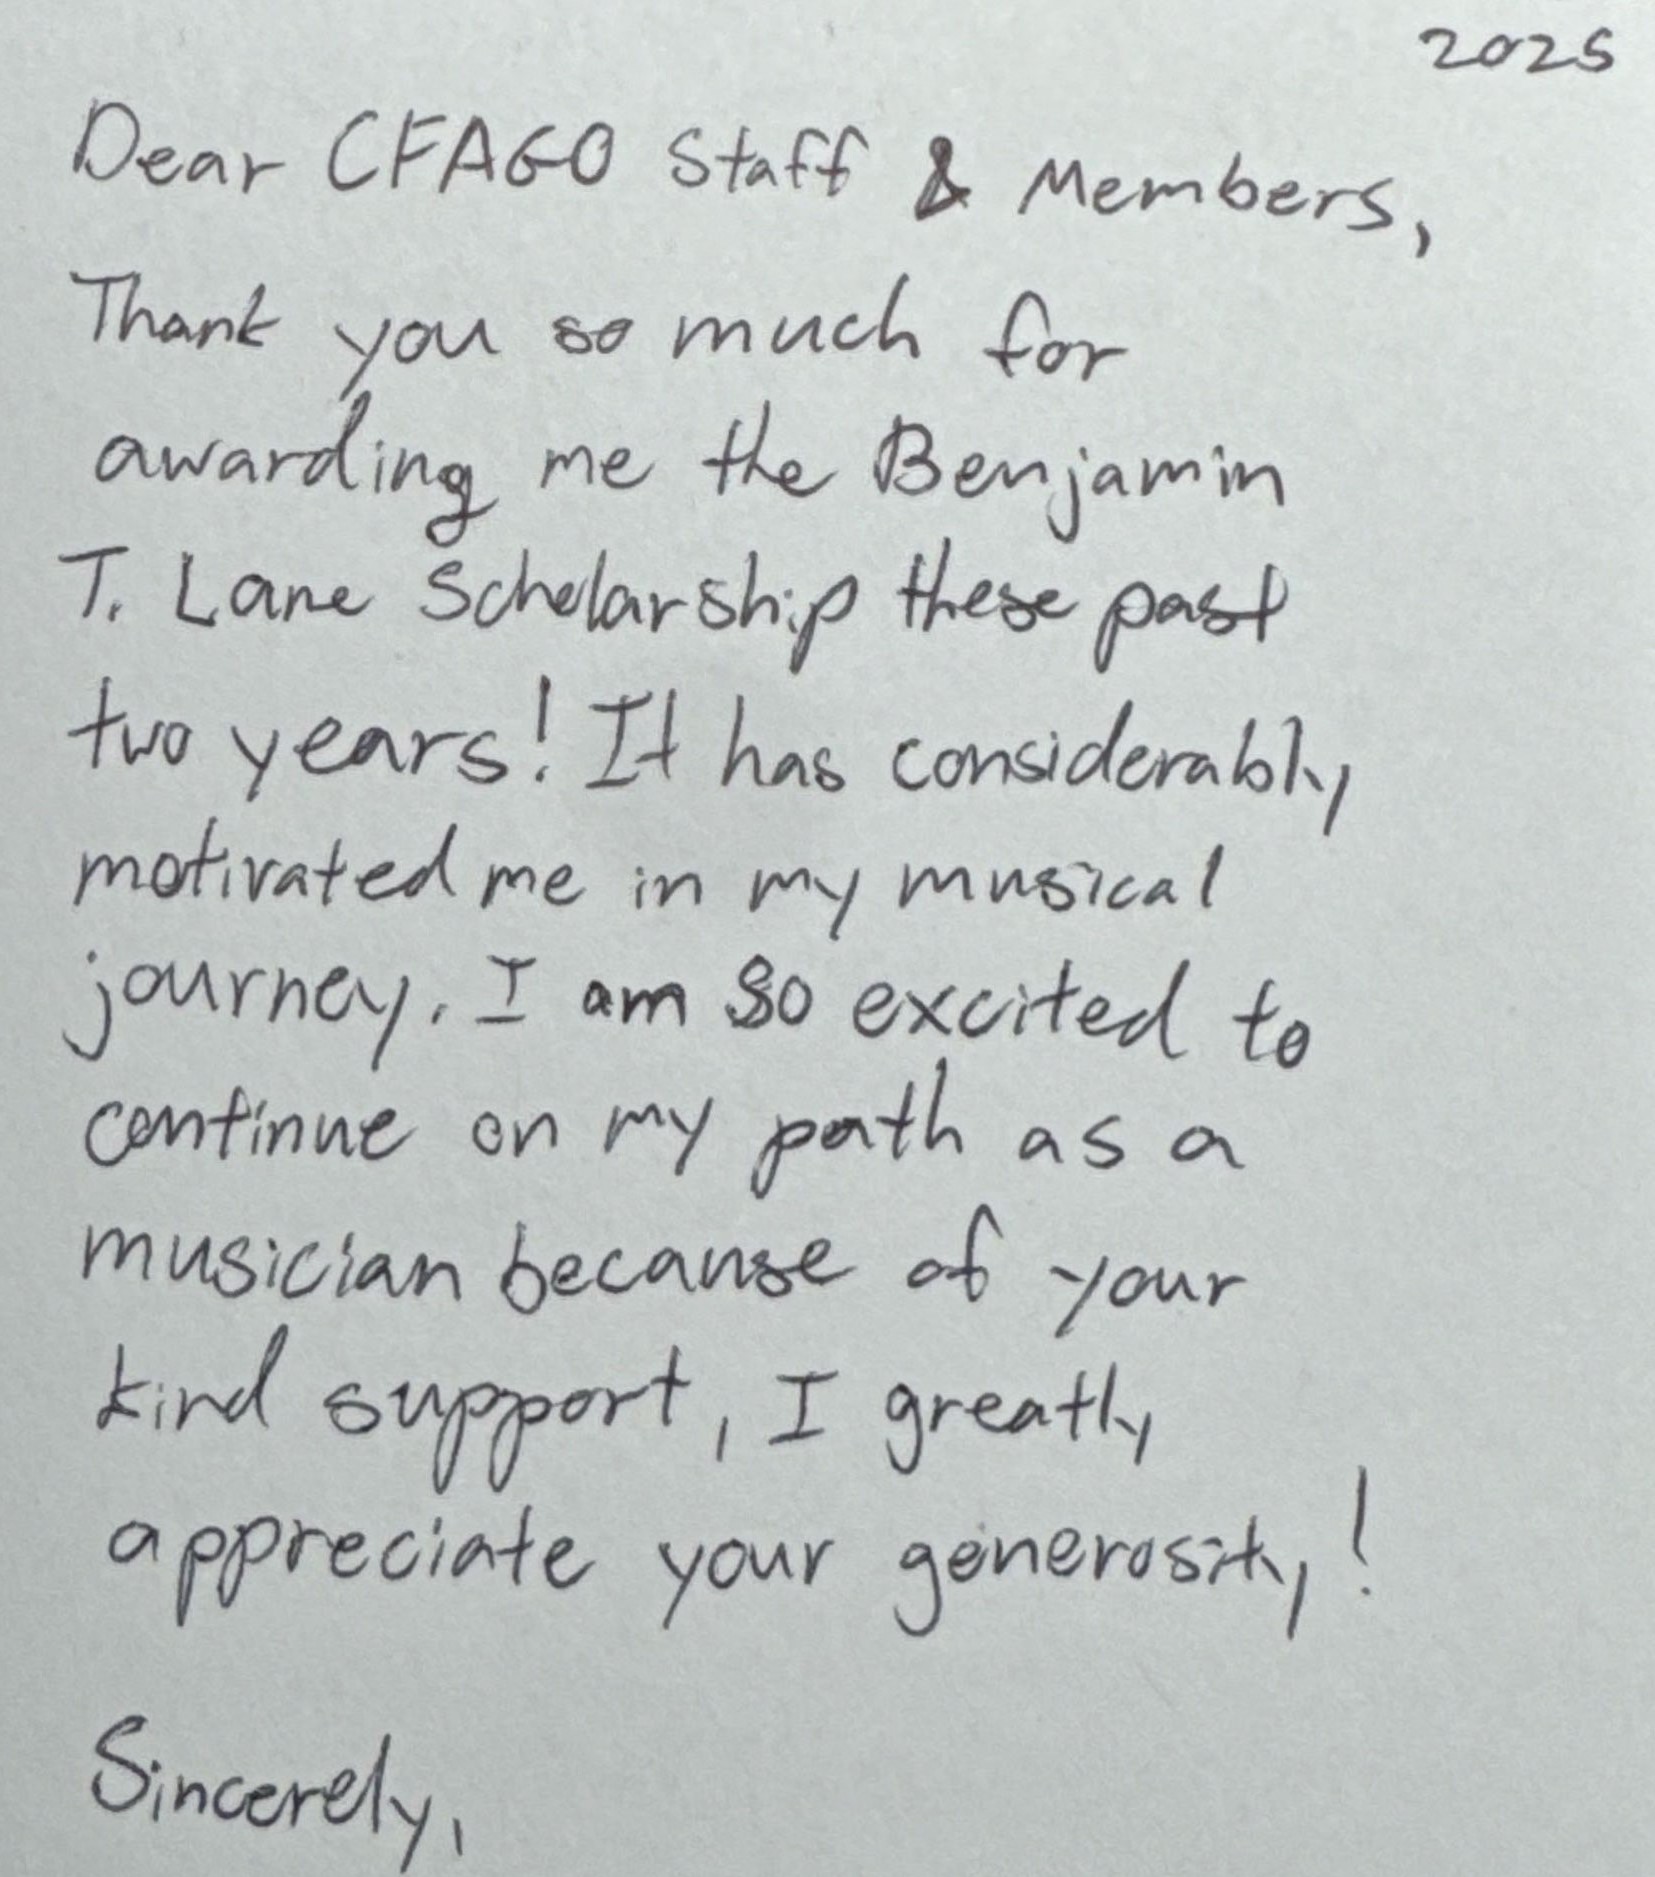 2025
Dear CFAGO Staff & Members,
Thank you so much for
awarding me the Benjamin
T. Lane Scholarship these past
two years! It has considerably
motivated me in my musical
journey. I am so excited to
continue on my path as a
musician because of your
kind support, I greatly
appreciate your generosity!
Sincerely,